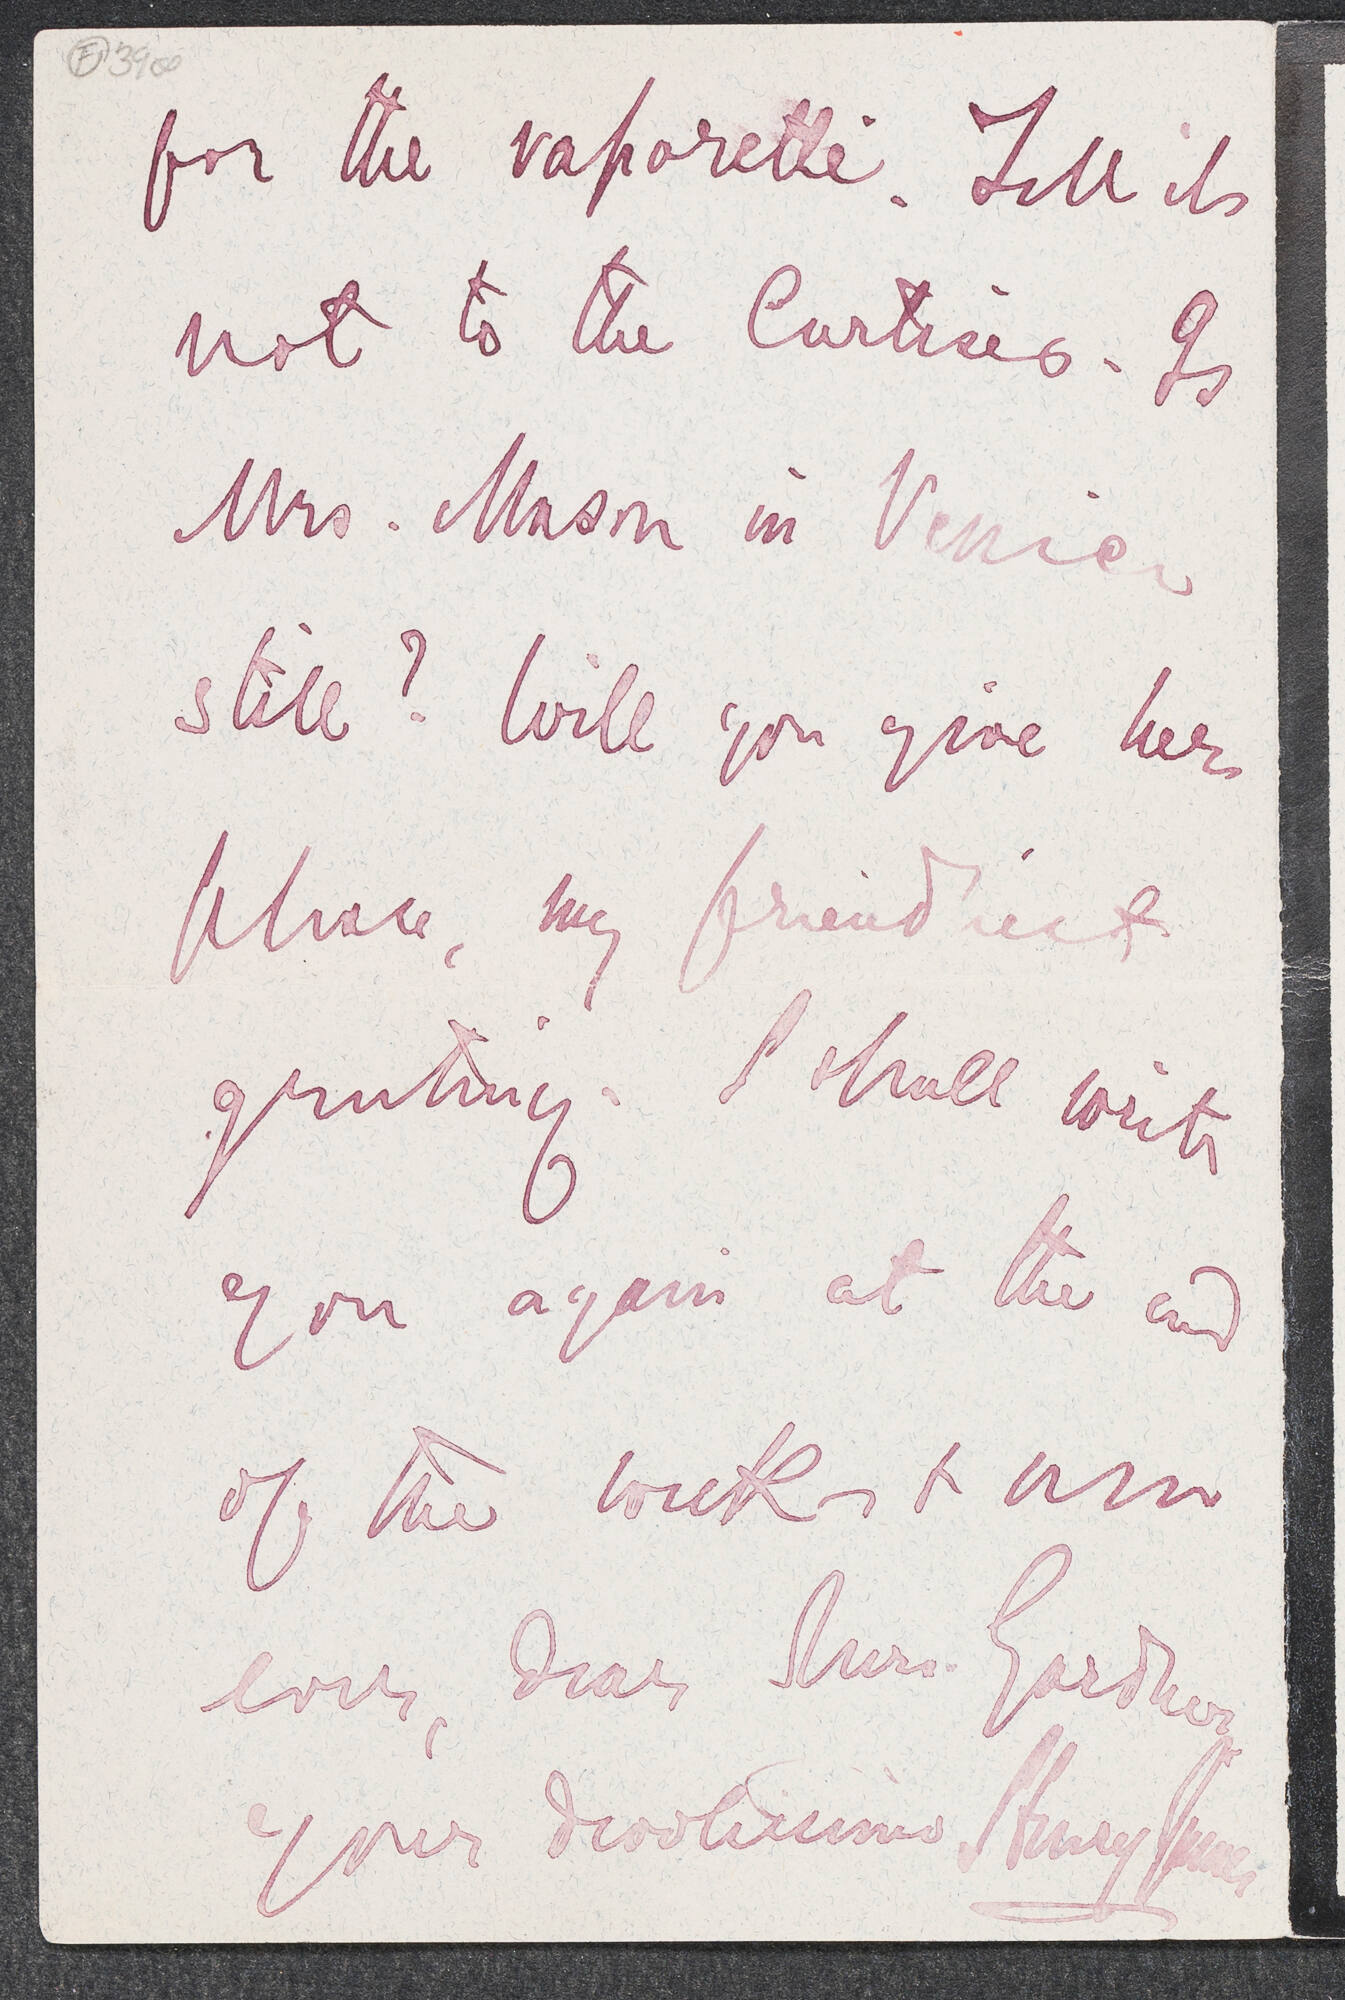 for the vaporetti. Tell it
not to the Curtises. Is
Mrs. Mason in Venice
still? Will you give her
please, my friendliest
greeting. I shall write
you again at the end
of the week & am
ever, dear Mrs. Gardner
your devotissimo Henry James